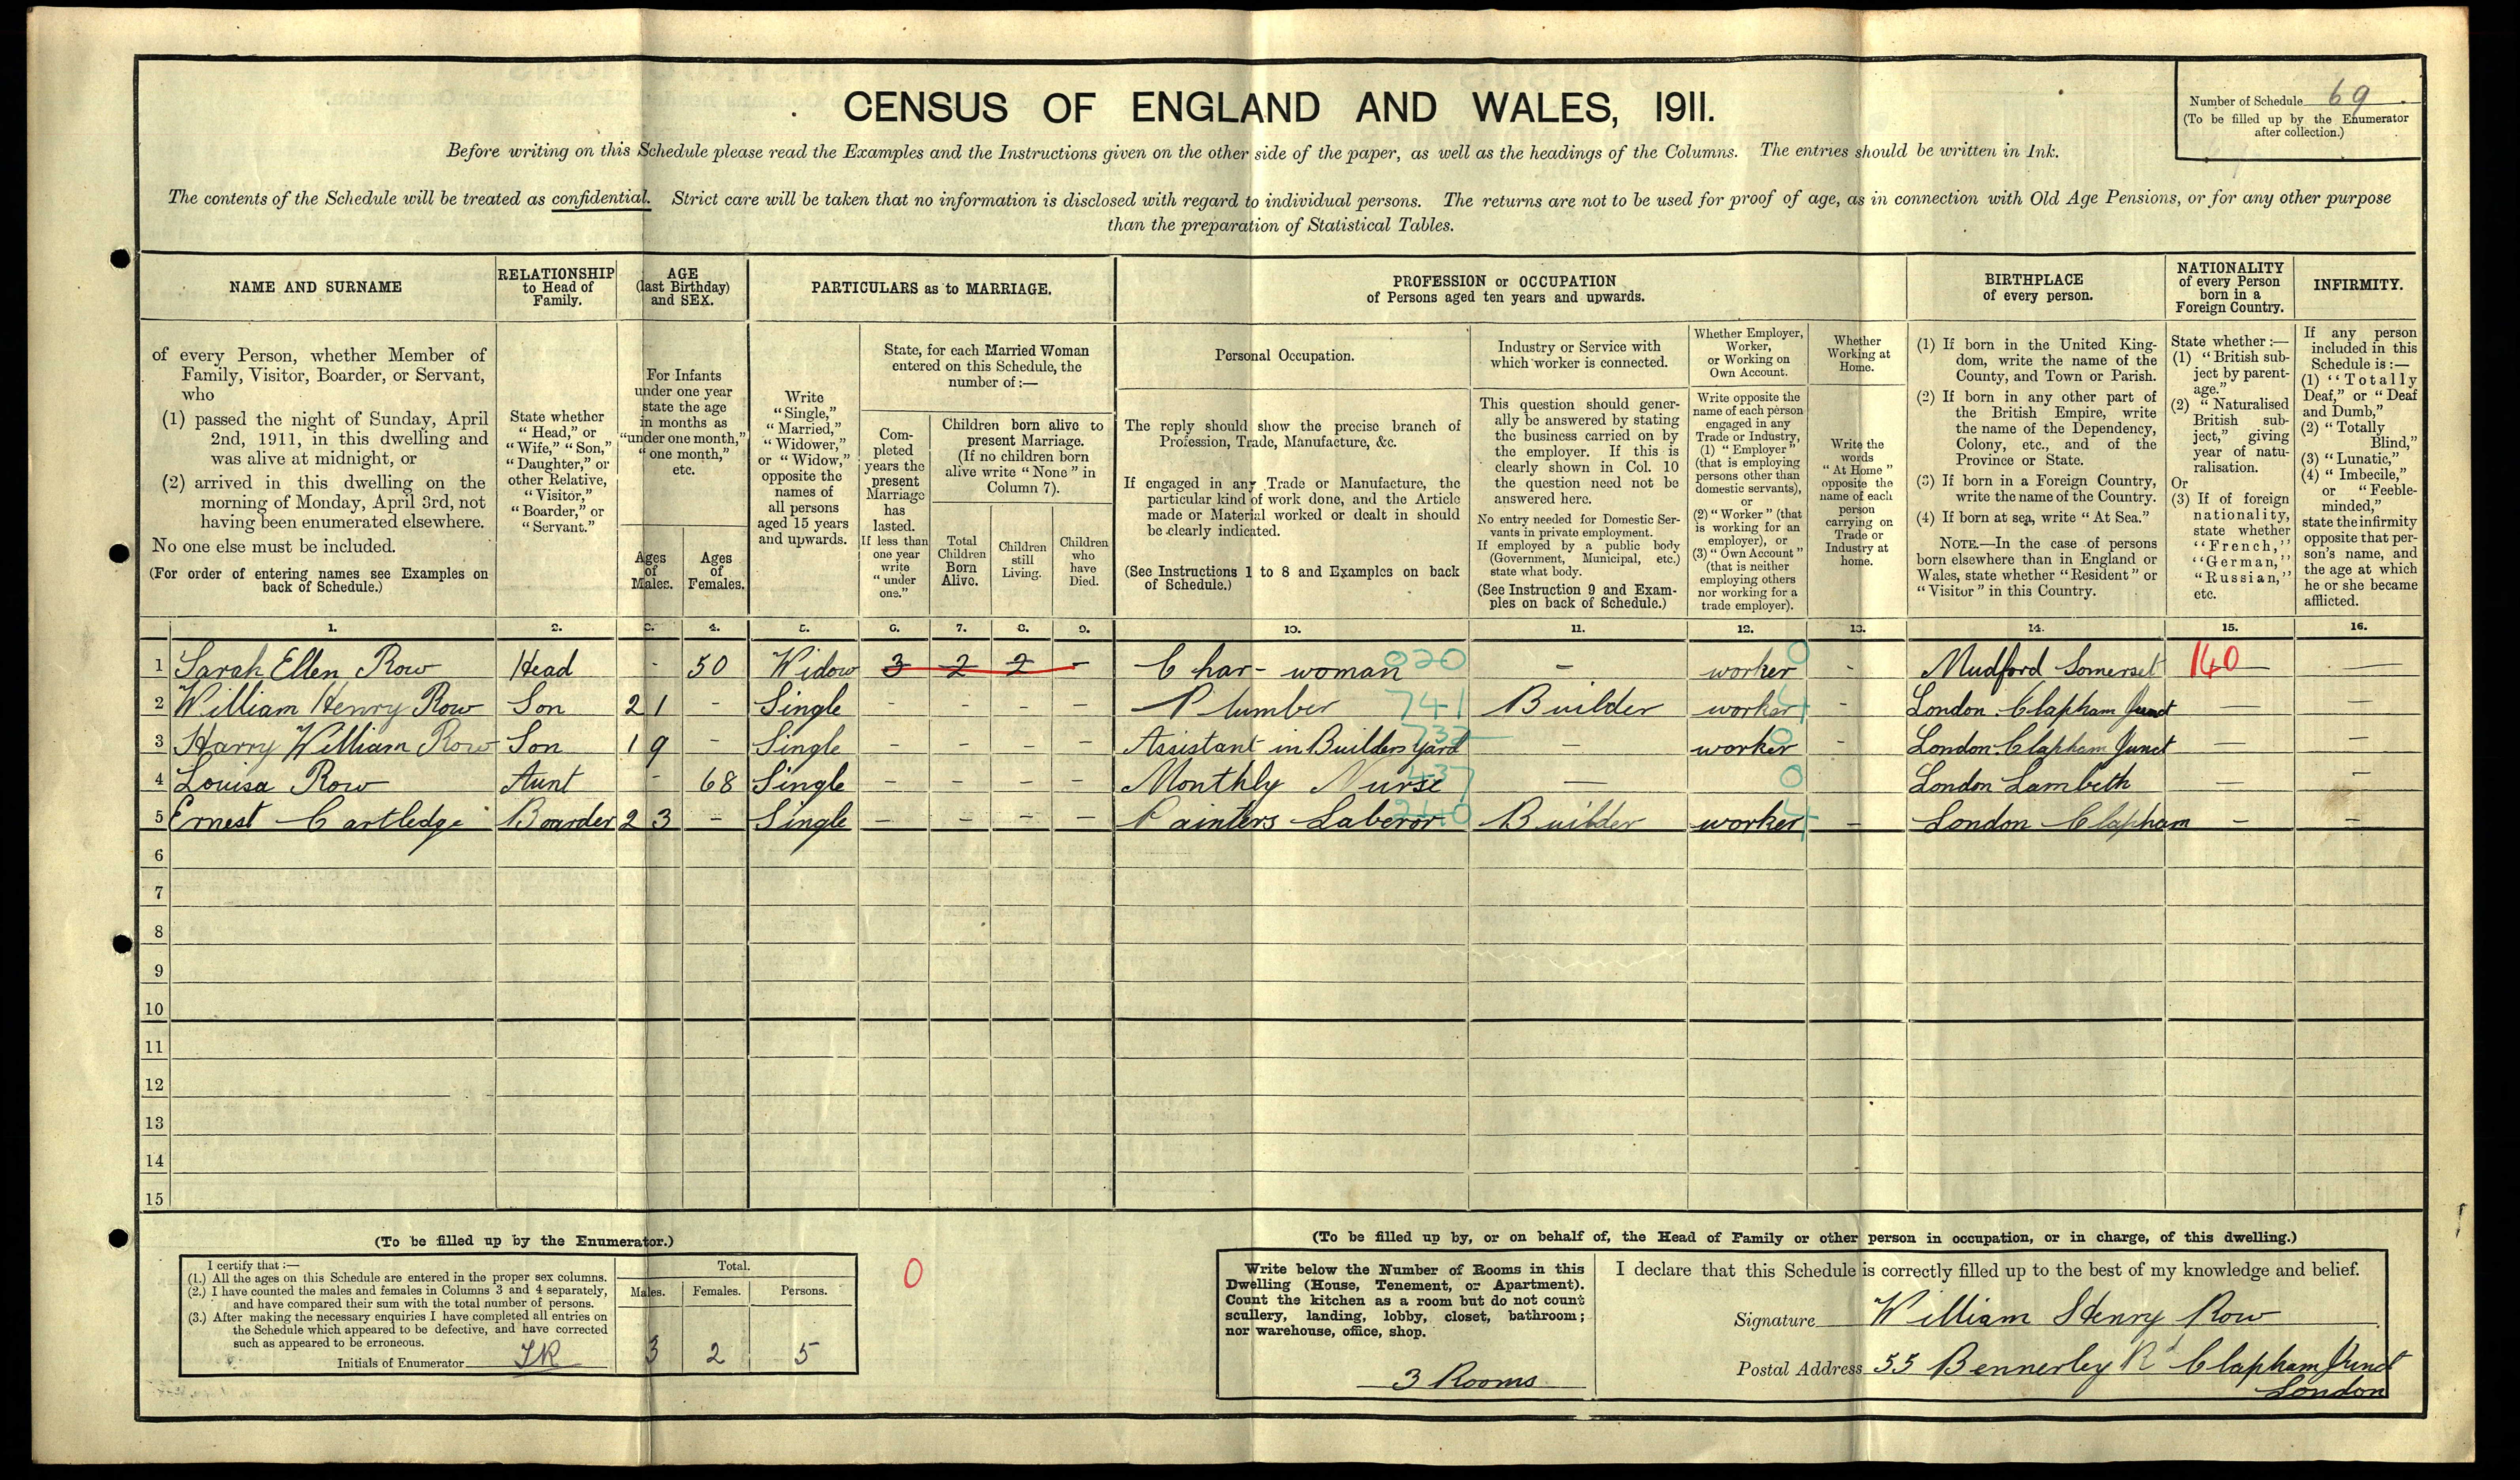 CENSUS OF ENGLAND AND WALES, 1911.
Number of Schedule 69
(To be filled up by the Enumerator
after collection.)
Before writing on this Schedule please read the Examples and the Instructions given on the other side of the paper, as well as the headings of the Columns. The entries should be written in Ink.
The contents of the Schedule will be treated as confidential. Strict care will be taken that no information is disclosed with regard to individual persons. The returns are not to be used for proof of age, as in connection with Old Age Pensions, or for any other purpose
than the preparation of Statistical Tables.
NAME AND SURNAME
of every Person, whether Member of
Family, Visitor, Boarder, or Servant,
who
(1) passed the night of Sunday, April
2nd, 1911, in this dwelling and
was alive at midnight, or
(2) arrived in this dwelling on the
morning of Monday, April 3rd, not
having been enumerated elsewhere.
No one else must be included.
(For order of entering names see Examples on
back of Schedule.)
RELATIONSHIP
to Head of
Family.
State whether
"Head," or
"Wife," "Son,"
"Daughter," or
other Relative,
"Visitor,"
"Boarder," or
"Servant."
AGE
(last Birthday)
and SEX.
For Infants
under one year
state the age
in months as
"under one month,"
"one month,"
etc.
Ages
of
Males.
Ages
of
Females.
PARTICULARS as to MARRIAGE.
Write
"Single,"
"Married,"
"Widower,"
or "Widow,"
opposite the
names of
all persons
aged 15 years
and upwards.
State, for each Married Woman
entered on this Schedule, the
number of :—
Com-
pleted
years the
present
Marriage
has
lasted.
If less than
one year
write
"under
one."
Children born alive to
present Marriage.
(If no children born
alive write "None" in
Column 7).
Total
Children
Born
Alive.
Children
still
Living.
Children
who
have
Died.
PROFESSION or OCCUPATION
of Persons aged ten years and upwards.
Personal Occupation.
The reply should show the precise branch of
Profession, Trade, Manufacture, &c.
If engaged in any Trade or Manufacture, the
particular kind of work done, and the Article
made or Material worked or dealt in should
be clearly indicated.
(See Instructions 1 to 8 and Examples on back
of Schedule.)
Industry or Service with
which worker is connected.
This question should gener-
ally be answered by stating
the business carried on by
the employer. If this is
clearly shown in Col. 10
the question need not be
answered here.
No entry needed for Domestic Ser-
vants in private employment.
If employed by a public body
(Government, Municipal, etc.)
state what body.
(See Instruction 9 and Exam-
ples on back of Schedule.)
Whether Employer,
Worker,
or Working on
Own Account.
Write opposite the
name of each person
engaged in any
Trade or Industry,
(1) "Employer"
(that is employing
persons other than
domestic servants),
or
(2) "Worker" (that
is working for an
employer), or
(3) "Own Account"
(that is neither
employing others
nor working for a
trade employer).
Whether
Working at
Home.
Write the
words
"At Home"
opposite the
name of each
person
carrying on
Trade or
Industry at
home.
BIRTHPLACE
of every person.
(1) If born in the United King-
dom, write the name of the
County, and Town or Parish.
(2) If born in any other part of
the British Empire, write
the name of the Dependency,
Colony, etc., and of the
Province or State.
(3) If born in a Foreign Country,
write the name of the Country.
(4) If born at sea, write "At Sea."
NOTE.—In the case of persons
born elsewhere than in England or
Wales, state whether "Resident" or
"Visitor" in this Country.
NATIONALITY
of every Person
born in a
Foreign Country.
State whether :—
(1) "British sub-
ject by parent-
age."
(2) "Naturalised
British sub-
ject," giving
year of natu-
ralisation.
Or
(3) If of foreign
nationality,
state whether
"French,"
"German,"
"Russian,"
etc.
INFIRMITY.
If any person
included in this
Schedule is :—
(1) "Totally
Deaf," or "Deaf
and Dumb,"
(2) "Totally
Blind,"
(3) "Lunatic,"
(4) "Imbecile,"
or "Feeble-
minded,"
state the infirmity
opposite that per-
son's name, and
the age at which
he or she became
afflicted.
1. 2. 3. 4. 5. 6. 7. 8. 9. 10. 11. 12. 13. 14. 15. 16.
1 Sarah Ellen Row Head - 50 Widow 3 2 2 - Char-woman 020 - worker 0 - Mudford Somerset 140 —
2 William Henry Row Son 21 - Single - - - - Plumber 741 Builder worker 4 - London Clapham Junct — —
3 Harry William Row Son 19 - Single - - - - Assistant in Builders Yard - worker 0 - London Clapham Junct — —
4 Louisa Row Aunt - 68 Single - - - - Monthly Nurse 437 — 0 London Lambeth — -
5 Ernest Cartledge Boarder 23 - Single - - - - Painters Laberor 240 Builder worker 4 - London Clapham - -
6
7
8
9
10
11
12
13
14
15
(To be filled up by the Enumerator.)
I certify that :—
(1.) All the ages on this Schedule are entered in the proper sex columns.
(2.) I have counted the males and females in Columns 3 and 4 separately,
and have compared their sum with the total number of persons.
(3.) After making the necessary enquiries I have completed all entries on
the Schedule which appeared to be defective, and have corrected
such as appeared to be erroneous.
Initials of Enumerator
Total.
Males. Females. Persons.
3 2 5
0
(To be filled up by, or on behalf of, the Head of Family or other person in occupation, or in charge, of this dwelling.)
Write below the Number of Rooms in this
Dwelling (House, Tenement, or Apartment).
Count the kitchen as a room but do not count
scullery, landing, lobby, closet, bathroom;
nor warehouse, office, shop.
3 Rooms
I declare that this Schedule is correctly filled up to the best of my knowledge and belief.
Signature William Henry Row
Postal Address 55 Bennerley Rd Clapham Junct
London